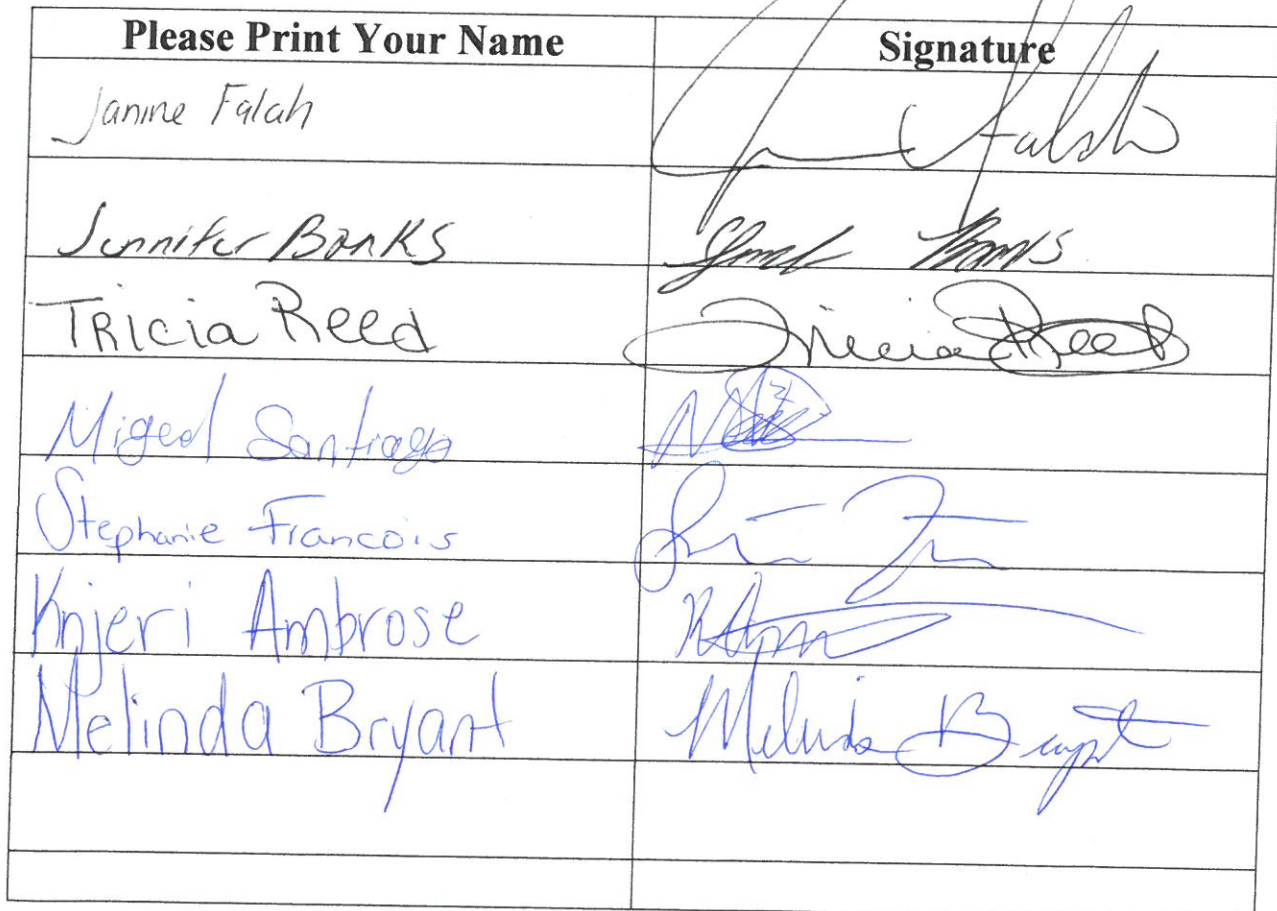 Please Print Your Name Signature
Janine Falah Falah
Jennifer Banks Banks
Tricia Reed Tricia Reed
Migeal Santiago
Stephanie Francois
Knjeri Ambrose
Melinda Bryant Melinda Bryant